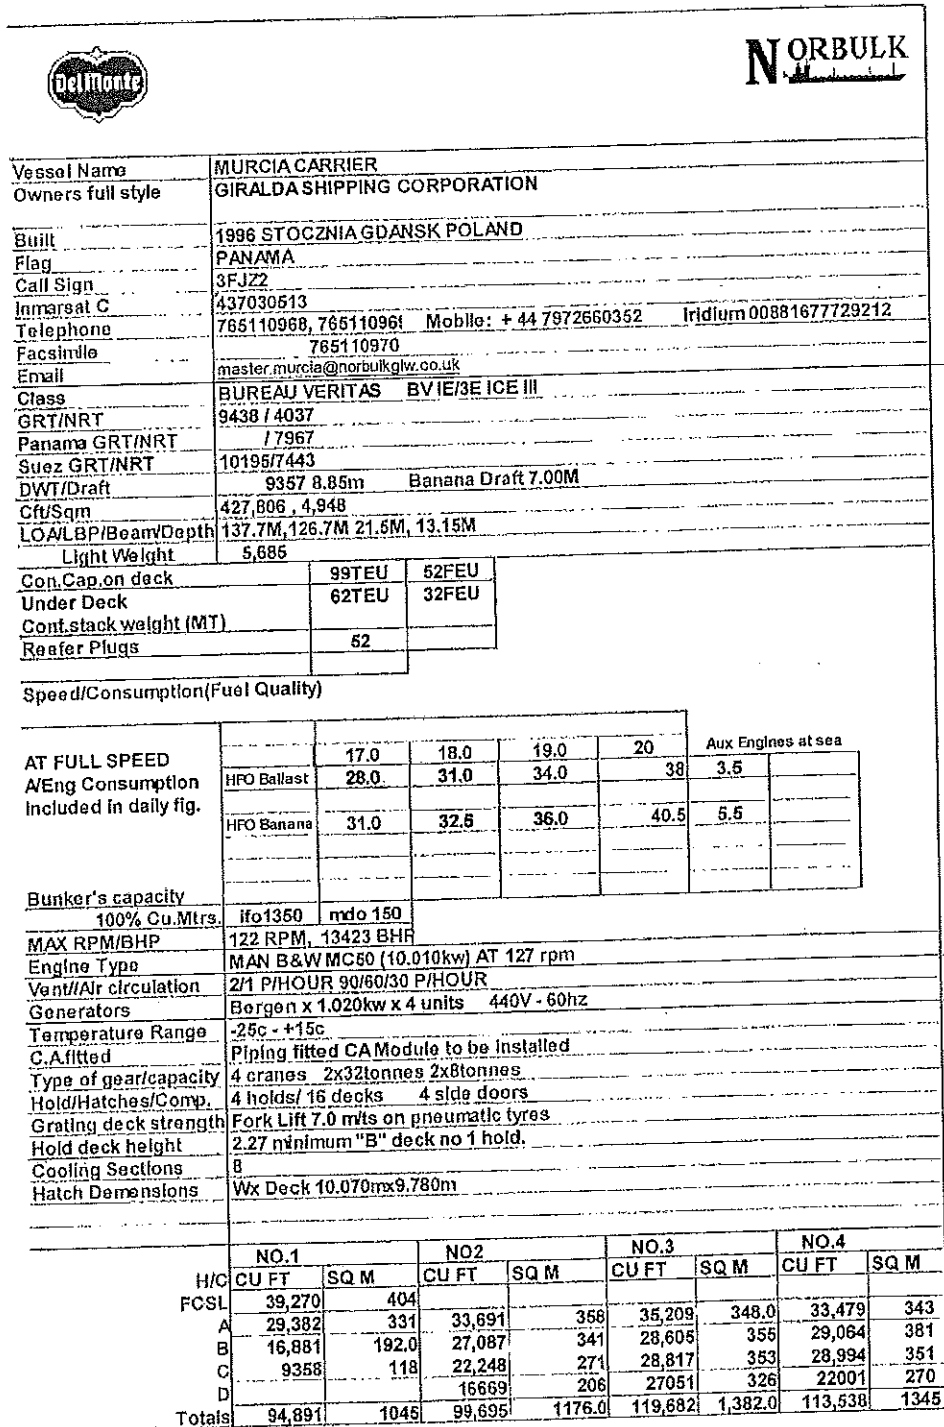 Del Monte
NORBULK
Vessel Name MURCIA CARRIER
Owners full style GIRALDA SHIPPING CORPORATION
Built 1996 STOCZNIA GDANSK POLAND
Flag PANAMA
Call Sign 3FJZ2
Inmarsat C 437030513
Telephone 765110968, 76511096! Mobile: + 44 7972660352 Iridium 00881677729212
Facsimile 765110970
Email master.murcia@norbulkglw.co.uk
Class BUREAU VERITAS BV IE/3E ICE III
GRT/NRT 9438 / 4037
Panama GRT/NRT / 7967
Suez GRT/NRT 10195/7443
DWT/Draft 9357 8.85m Banana Draft 7.00M
Cft/Sqm 427,806 , 4,948
LOA/LBP/Beam/Depth 137.7M,126.7M 21.5M, 13.15M
Light Weight 5,685
Con.Cap.on deck 99TEU 52FEU
Under Deck 62TEU 32FEU
Cont.stack weight (MT)
Reefer Plugs 52
Speed/Consumption(Fuel Quality)
AT FULL SPEED 17.0 18.0 19.0 20 Aux Engines at sea
A/Eng Consumption HFO Ballast 28.0 31.0 34.0 38 3.5
Included in daily fig.
HFO Banana 31.0 32.5 36.0 40.5 5.5
Bunker's capacity
100% Cu.Mtrs. ifo1350 mdo 150
MAX RPM/BHP 122 RPM, 13423 BHP
Engine Type MAN B&W MC50 (10.010kw) AT 127 rpm
Vent//Air circulation 2/1 P/HOUR 90/60/30 P/HOUR
Generators Bergen x 1.020kw x 4 units 440V - 60hz
Temperature Range -25c - +15c
C.A fitted Piping fitted CA Module to be installed
Type of gear/capacity 4 cranes 2x32tonnes 2x8tonnes
Hold/Hatches/Comp. 4 holds/ 16 decks 4 side doors
Grating deck strength Fork Lift 7.0 m/ts on pneumatic tyres
Hold deck height 2.27 minimum "B" deck no 1 hold.
Cooling Sections 8
Hatch Demensions Wx Deck 10.070mx9.780m
NO.1 NO2 NO.3 NO.4
H/C CU FT SQ M CU FT SQ M CU FT SQ M CU FT SQ M
FCSL 39,270 404
A 29,382 331 33,691 358 35,209 348.0 33,479 343
B 16,881 192.0 27,087 341 28,605 355 29,064 381
C 9358 118 22,248 271 28,817 353 28,994 351
D 16669 206 27051 326 22001 270
Totals 94,891 1045 99,695 1176.0 119,682 1,382.0 113,538 1345